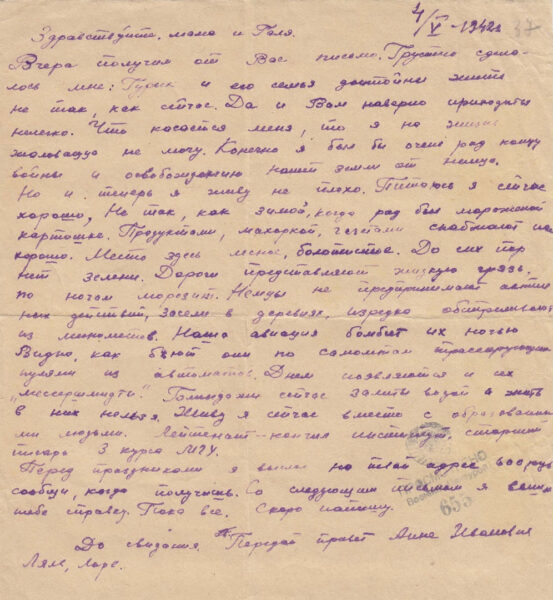 4/V-1942г.
37
Здравствуйте, мама и Галя.
Вчера получил от Вас письмо. Грустно сдела-
лось мне: и его семья достойны жить
не так, как сейчас. Да и Вам наверно приходится
нелегко. Что касается меня, то я на жизнь
жаловаться не могу. Конечно я был бы очень рад концу
войны и освобождению нашей земли от немца.
Но и теперь я живу не плохо. Питаюсь я сейчас
хорошо, Не так, как зимой, когда рад был мороженой
картошке. Продуктами, махоркой, газетами снабжают нас
хорошо. Место здесь лесное, болотистое. До сих пор
нет зелени. Дороги представляют жидкую грязь,
по ночам морозит. Немцы не предпринимают актив
ных действий, засели в деревнях, изредко обстреливают
из минометов. Наша авиация бомбит их ночью
Видно, как бьют они по самолетам трассирующими
пулями из автоматов. Днем появляются и их
"мессершмидты". Блиндажи сейчас залиты водой и жить
в них нельзя. Живу я сейчас вместе с образованны
ми людьми. Лейтенант - кончил институт, старший
писарь 3 курса МГУ.
Перед праздниками я выслал на твой адрес 600 руб
сообщи, когда получишь. Со следующим письмом я вышлю
тебе справку. Пока все. Скоро напишу.
655
До свидания. Передай привет Анне Ивановне
Ляле, Ларе.